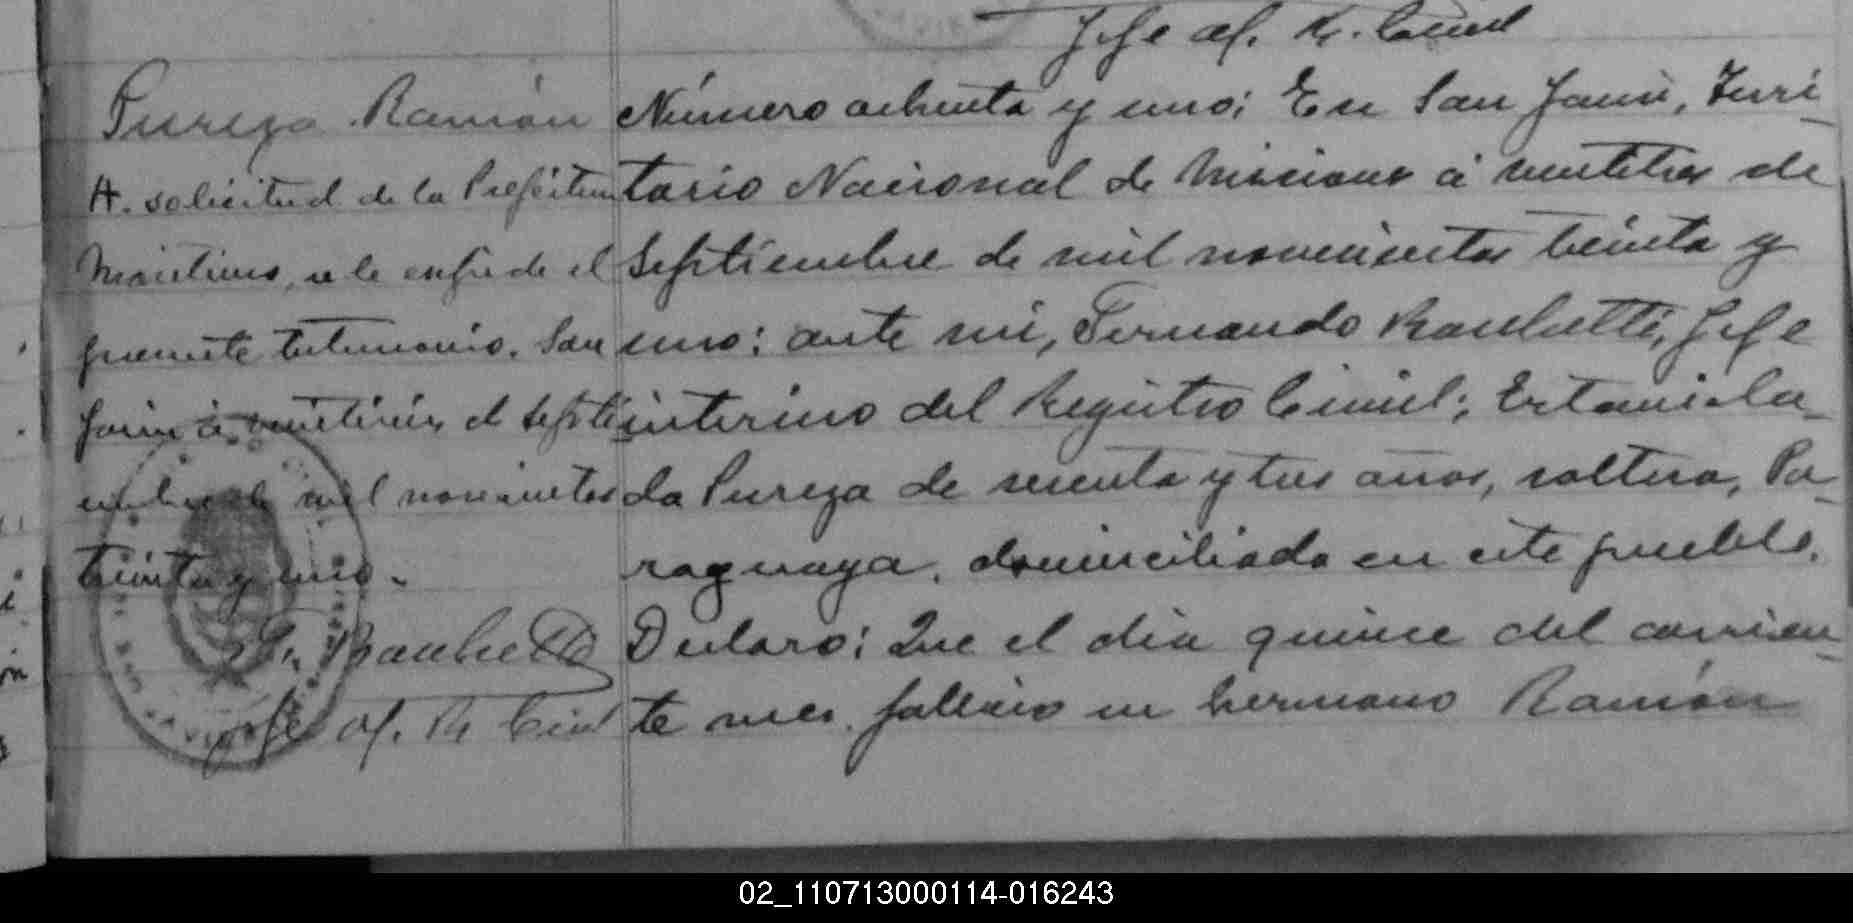 Jefe of. R. Civil
Pureza Ramón
A. solicitud de la Prefectura
Maritima, se le expide el
presente testimonio. San
Javier á veintiseis de septi
embre de mil novecientos
treinta y uno.
F. Raubetti
Jefe of. R. Civil
Número ochenta y uno; En San Javier, Terri-
torio Nacional de Misiones á veintitres de
Septiembre de mil novecientos treinta y
uno; ante mi, Fernando Raubetti, Jefe
interino del Registro Civil; Estanisla-
da Pureza de sesenta y tres años, soltera, Pa-
raguaya, domiciliada en este pueblo.
Declaro; Que el dia quince del corrien-
te mes fallecio su hermano Ramón
02_110713000114-016243